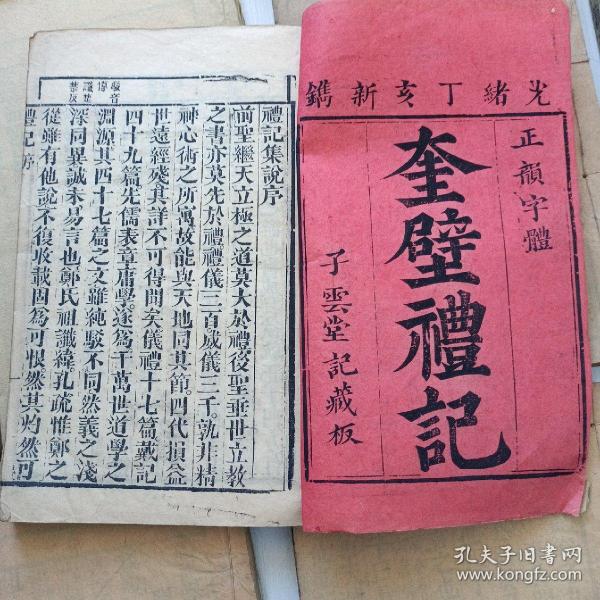 光緒丁亥新鐫
正韻字體
奎壁禮記
子雲堂記藏板
禮記集說序
前聖繼天立極之道莫大於禮後聖垂世立教
之書亦莫先於禮禮儀三百威儀三千孰非精
神心術之所寓故能與天地同其節四代損益
世遠經殘其詳不可得聞矣儀禮十七篇戴記
四十九篇先儒表章庸學遂為千萬世道學之
淵源其四十七篇之文雖純駁不同然義之淺
深同異誠未易言也鄭氏祖讖緯孔疏惟鄭之
從雖有他說不復收載固為可恨然其灼然可
禮記序
孔夫子旧书网
www.kongfz.com